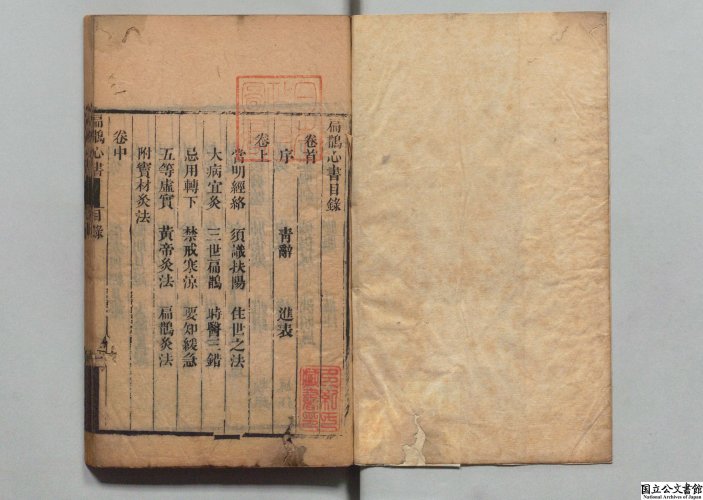 扁鵲心書目錄
卷首
序　青辭　進表
卷上
當明經絡　須識扶陽　住世之法
大病宜灸　三世扁鵲　時醫三錯
忌用轉下　禁戒寒涼　要知緩急
五等虛實　黃帝灸法　扁鵲灸法
附竇材灸法
卷中
扁鵲心書　目錄
国立公文書館
National Archives of Japan